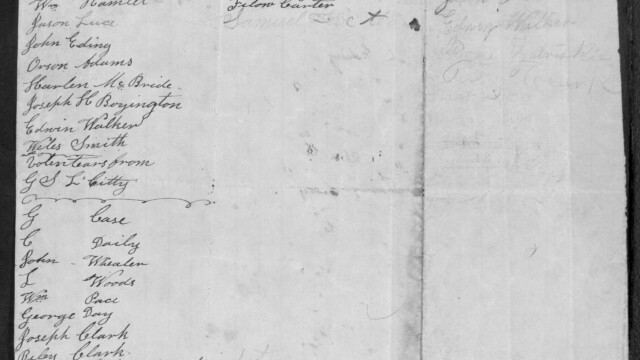 Wm Hamler
Jason Luce
John Eding
Orson Adams
Harlen McBride
Joseph H Boyington
Edwin Walker
Wiles Smith
Volentears from
G S L Citty
G Case
C Daily
John Wheeler
L Woods
Wm Pace
George Day
Joseph Clark
Riley Clark
Filow Carter
Samuel
Edwin Walker